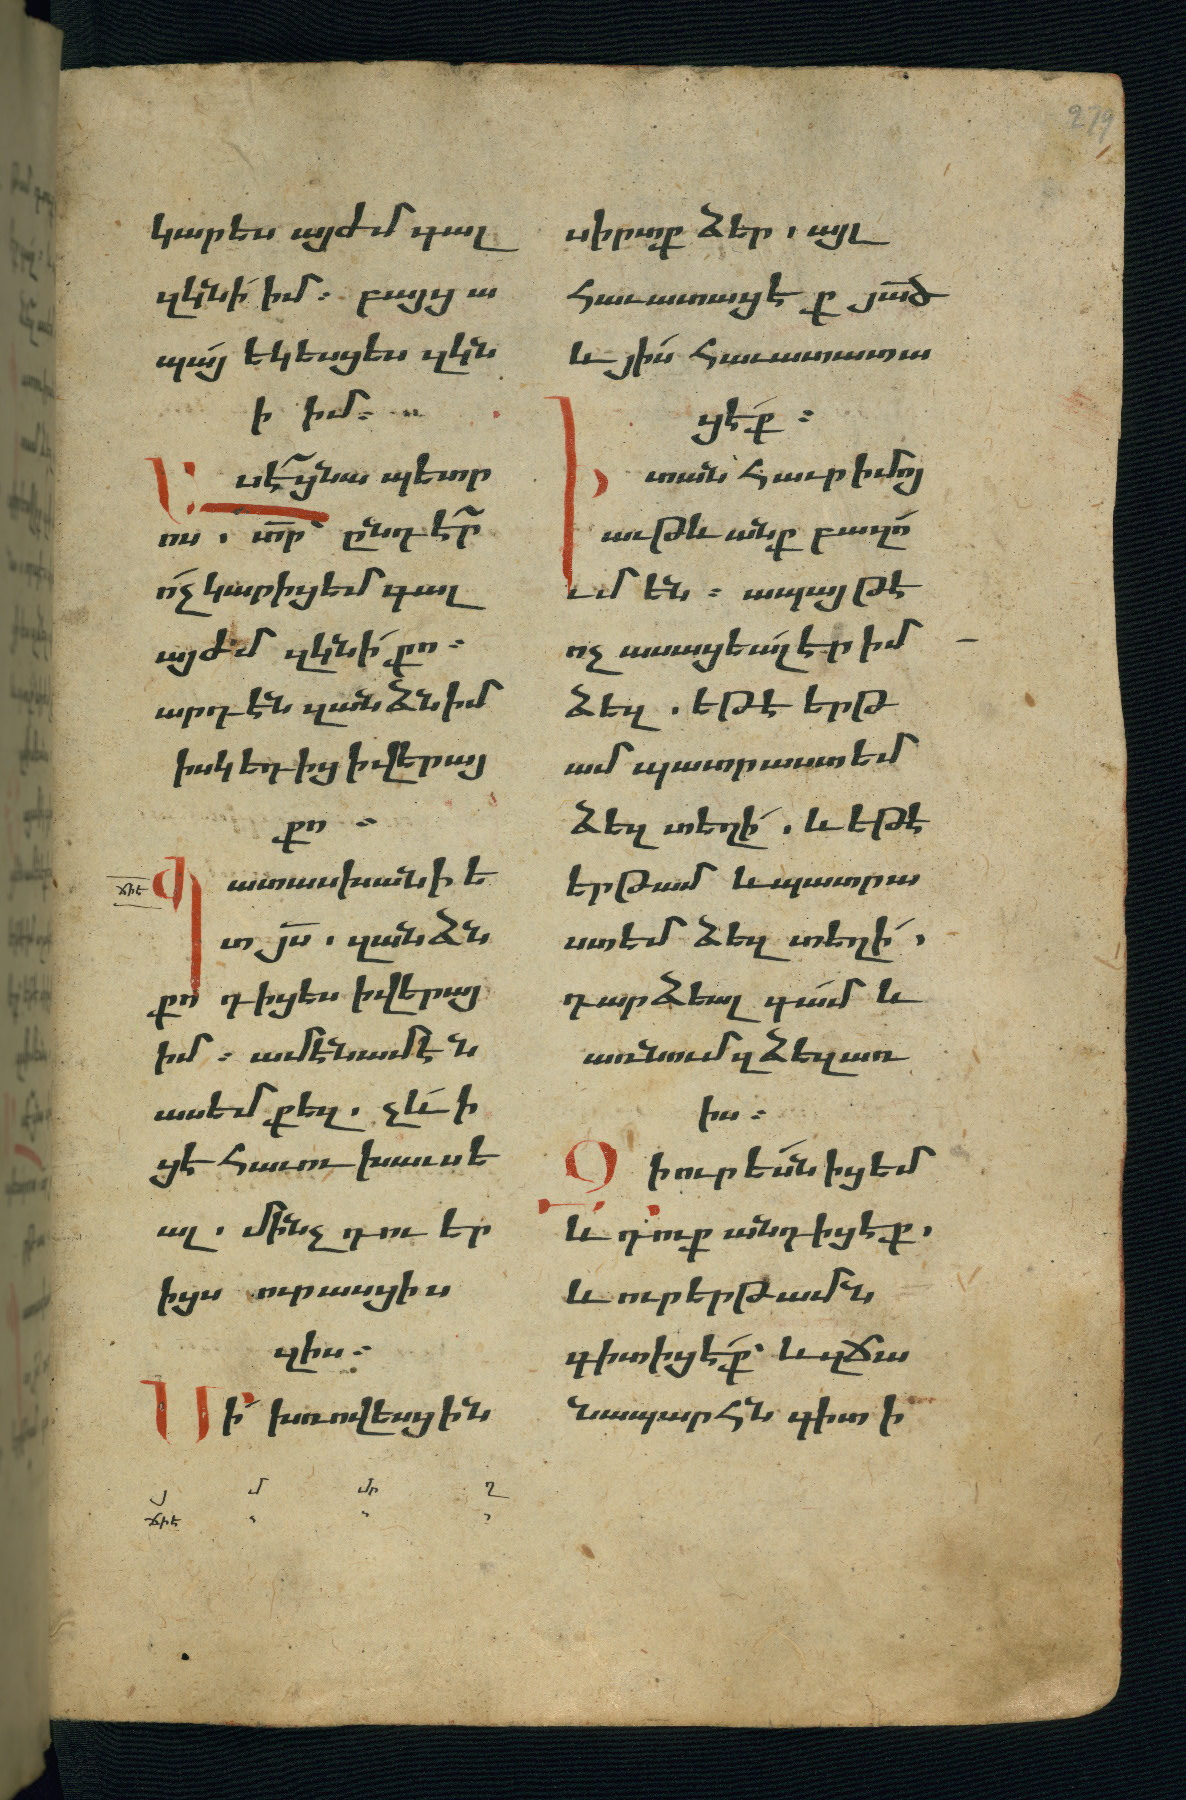 279
կարես այժմ գալ
զկնի իմ։ բայց ա
պայ եկեսցես զկն
ի իմ։
Ասէ ցնա պետր
ոս, տր՝ ընդէր
ոչ կարիցեմ գալ
այժմ զկնի քո։
արդ էն զանձն իմ
իսկ եդից ի վերայ
քո։
ճիե
Պատասխանի ե
տ յս, զանձն
քո դիցես ի վերայ
իմ։ ամէն ամէն
ասեմ քեզ, չև ի
ցէ հաւու խաւսե
ալ, մինչ դու եր
իցս ուրասցիս
զիս։
Մի խռովեսցին
սիրտք ձեր, այլ
հաւատացէք յած
և յիս հաւատատա
ցէք։
Ի տան հաւր իմոյ
աւթևանք բազո
ւմ են։ ապա թէ
ոչ ասացեալ էր իմ
ձեզ. եթէ երթ
ամ պատրաստեմ
ձեզ տեղի. և եթէ
երթամ և պատրա
ստեմ ձեզ տեղի,
դարձեալ գամ և
առնում զձեզ առ
իս։
Զի ուր ես եմ իցեմ
և դուք անդ իցէք,
և ուր երթամն
գիտիցէք՝ և զճա
նապարհն գիտի
յ մ մր ղ
ճիե